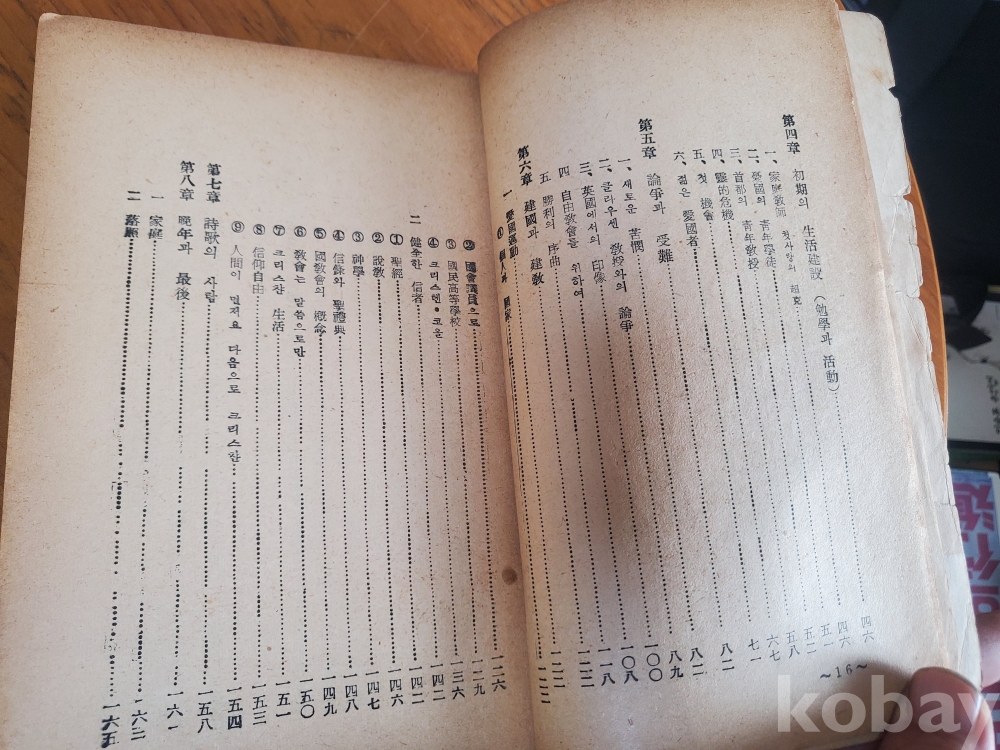 第四章 初期의 生活建設 (勉學과 活動) 四六
一、家庭敎師 四六
첫사랑의 超克 五一
二、憂國의 靑年學徒 五二
三、首都의 靑年敎授 五八
四、靈的危機 六七
五、첫 機會 七一
六、젊은 愛國者 八二
第五章 論爭과 受難 八二
一、새로운 苦憫 八九
二、클라우센 敎授와의 論爭 一〇〇
三、英國에서의 印像 一〇八
四 自由敎會를 위하여 一一八
五 勝利의 序曲
第六章 建國과 建敎 一二二
一 愛國運動 一二二
① 個人과 國家
~16~
② 國會議員으로 一二六
③ 國民高等學校 一二九
④ 크리스텐•코올 一三六
二 健全한 信者 一四二
① 聖經 一四二
② 說敎 一四六
③ 神學 一四七
④ 信條와 聖禮典 一四八
⑤ 國敎會의 槪念 一四九
⑥ 敎會는 말씀으로만 一五〇
⑦ 크리스챤 生活 一五一
⑧ 信仰自由 一五三
⑨ 人間이 먼저요 다음으로 크리스챤 一五四
第七章 詩歌의 사람 一五八
第八章 晩年과 最後 一六一
一 家庭 一六二
二 一六五
kobay